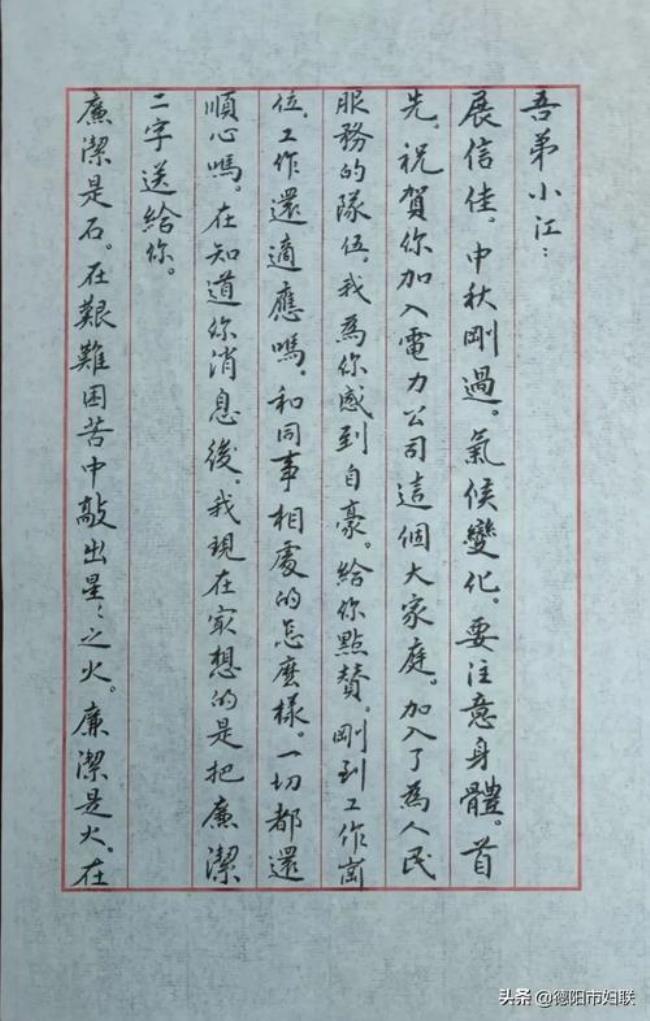 吾弟小江：
展信佳。中秋剛過。氣候變化。要注意身體。首
先。祝賀你加入電力公司這個大家庭。加入了為人民
服務的隊伍。我為你感到自豪。給你點贊。剛到工作崗
位。工作還適應嗎。和同事相處的怎麽樣。一切都還
順心嗎。在知道你消息後。我現在最想的是把廉潔
二字送給你。
廉潔是石。在艱難困苦中敲出星〻之火。廉潔是火。在
头条 @德阳市妇联